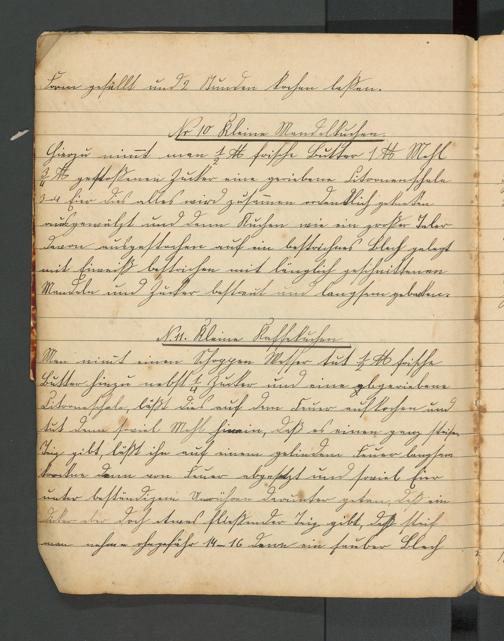 Form gefüllt und 2 Stunden kochen lassen.
No 10 Kleine Mandelkuchen.
Hierzu nimmt man ½ ℔ frische Butter 1 ℔ Mehl
½ ℔ gestoßenen Zucker eine geriebene Citronenschale
3-4 Eier dies alles wird zusammen ordentlich geknetet
ausgewälzt und dann Kuchen wie ein großer Taler
davon ausgestochen auf ein bestrichenes Blech gelegt
mit Eiweiß bestrichen mit länglich geschnittenen
Mandeln und Zucker bestreut und langsam gebacken.
No 11. Kleine Kaffekuchen
Man nimmt einen Schoppen Wasser tut ½ ℔ frische
Butter hinzu nebst ¼ Zucker und eine abgeriebene
Citronschale, läßt dies auf dem Feuer aufkochen und
tut dann soviel Mehl hinein, daß es einen ganz steifen
Teig gibt, läßt ihn auf einem gelinden Feuer langsam
dann vom Feuer abgesetzt und soviel Eier
unter beständigem darunter getan, daß ein
dicker aber doch etwas fließender Teig gibt, daß
man nehme ohngefähr 14-16 dann ein sauber Blech